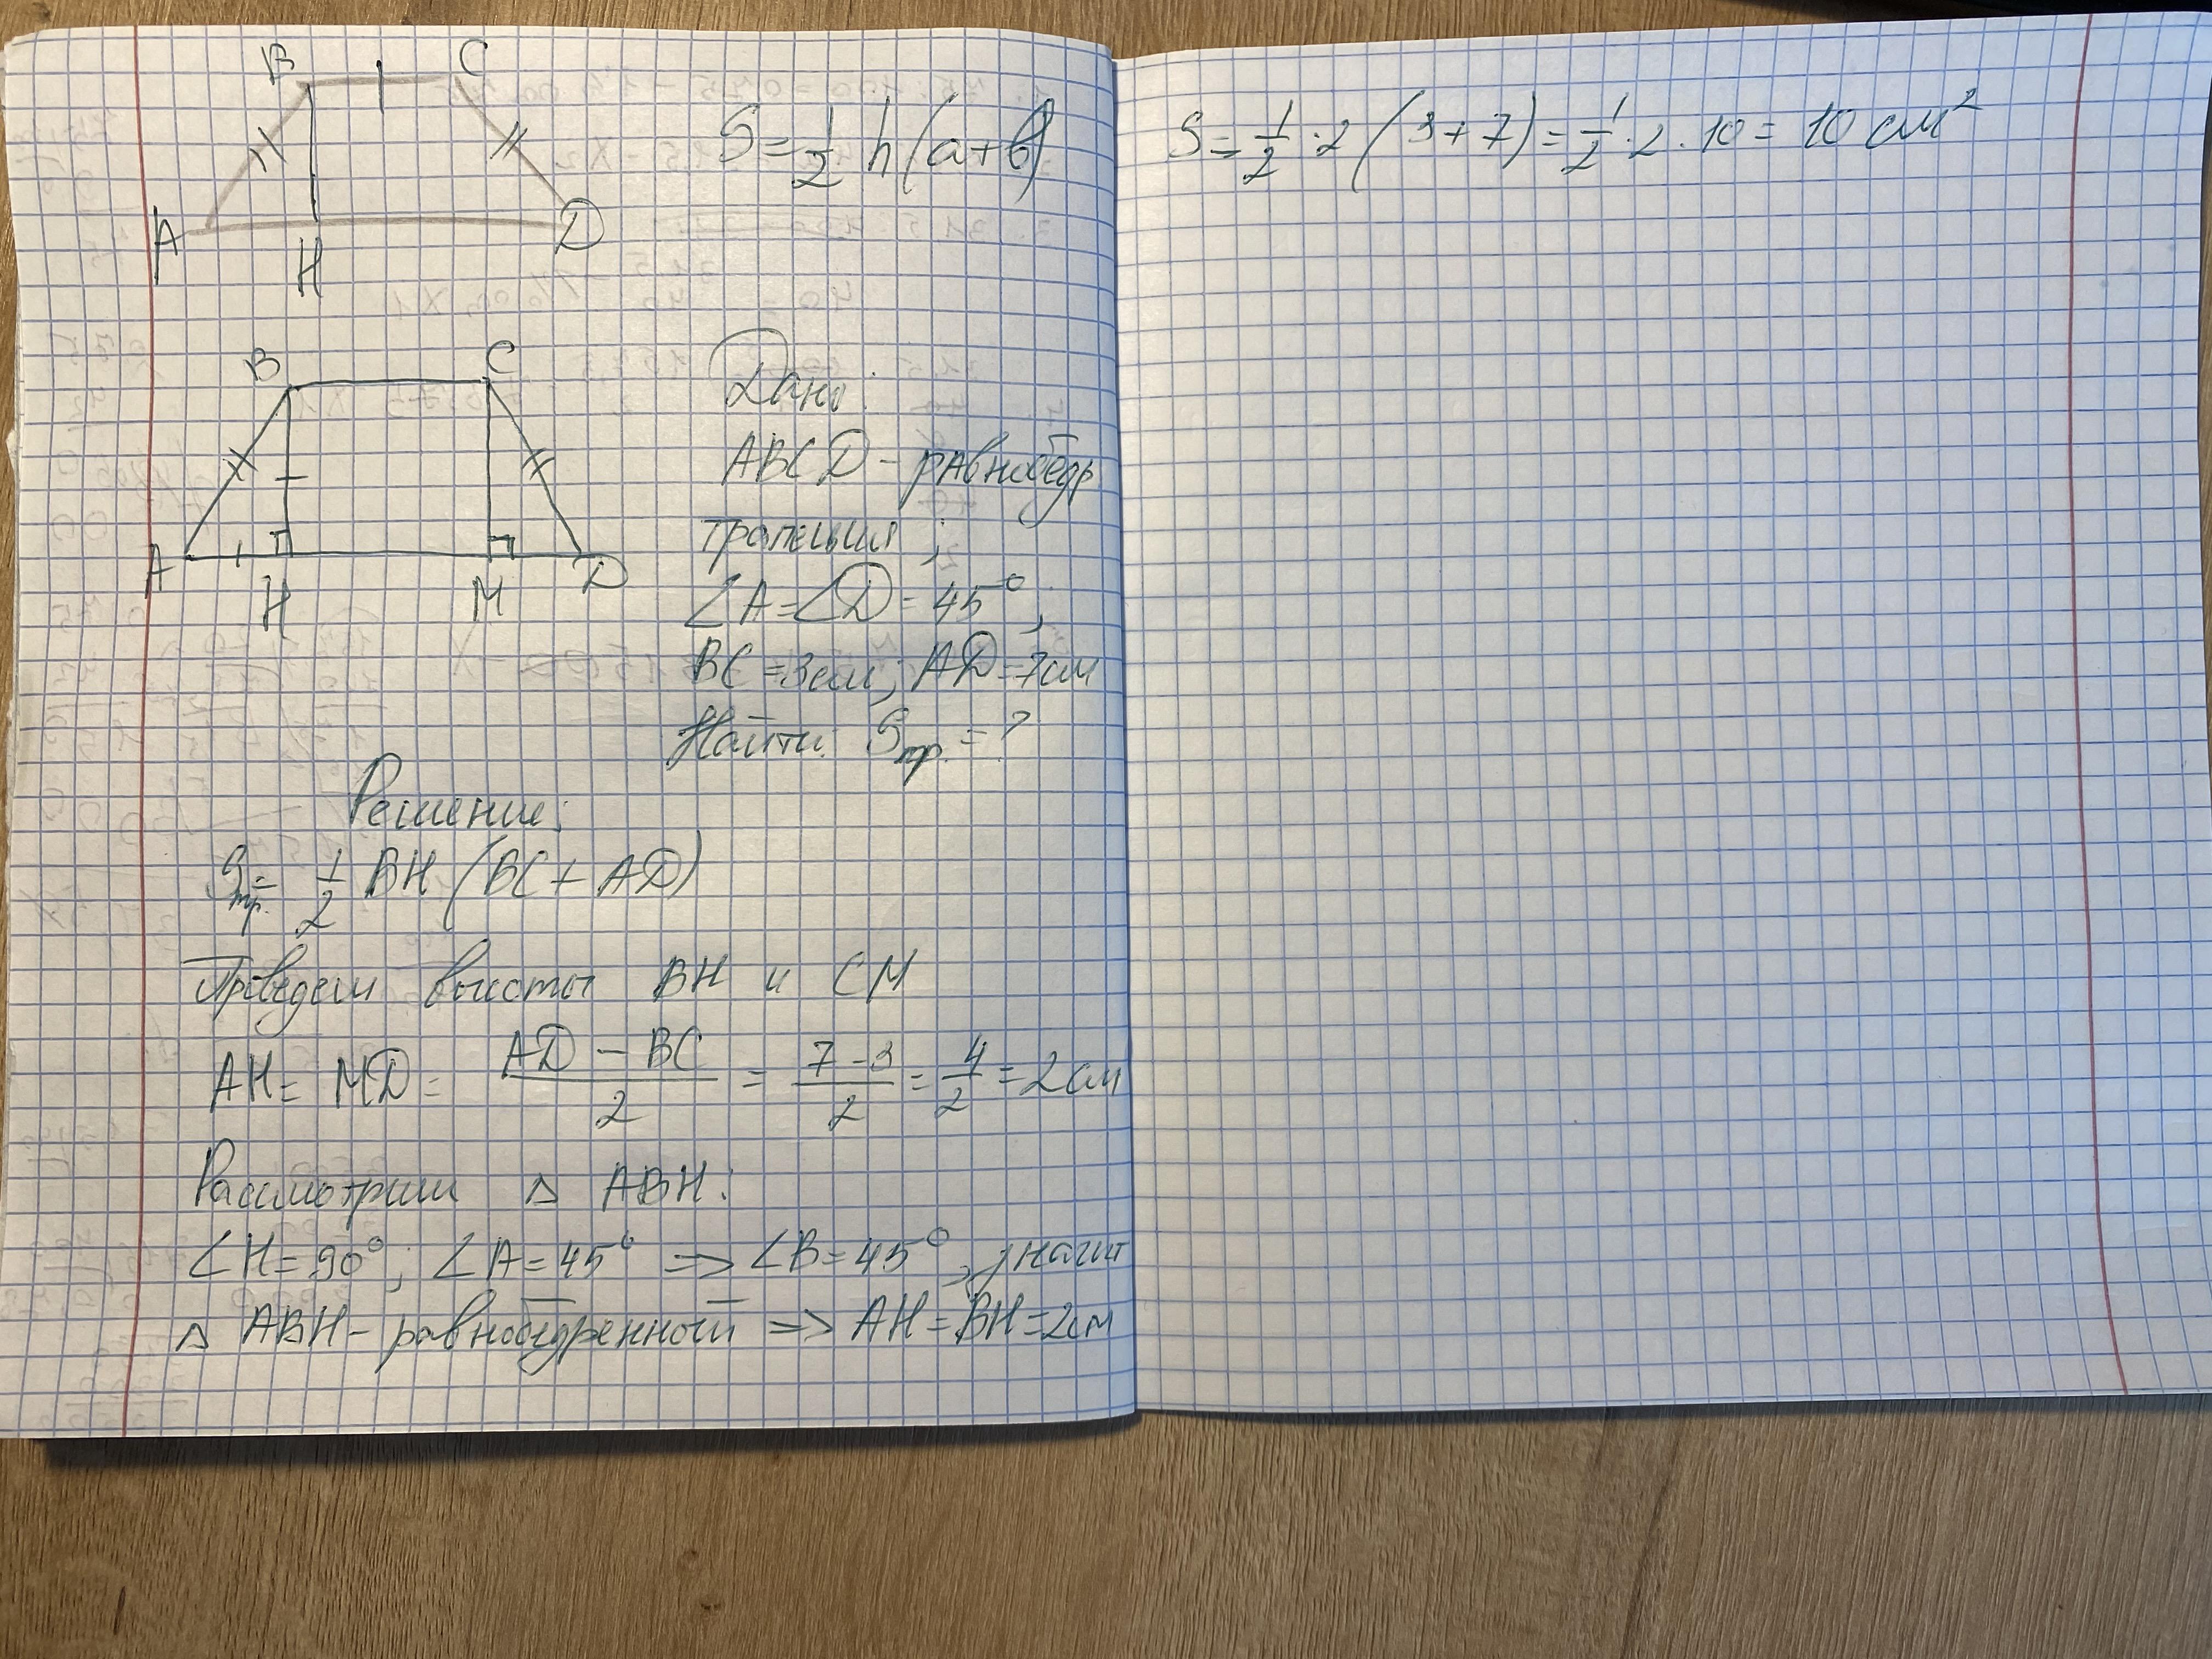 B C
S = 1/2 h (a+b)
A H D
B C
A H M D
Дано:
ABCD - равнобедр
трапеция;
∠A = ∠D = 45°;
BC = 3см; AD = 7см
Найти: Sтр. = ?
Решение:
Sтр. = 1/2 BH (BC + AD)
Проведем высоты BH и CM
AH = MD = (AD - BC)/2 = (7 - 3)/2 = 4/2 = 2 см
Рассмотрим △ ABH:
∠H = 90°; ∠A = 45° => ∠B = 45°, значит
△ ABH - равнобедренный => AH = BH = 2см
S = 1/2 · 2 (3 + 7) = 1/2 · 2 · 10 = 10 см²